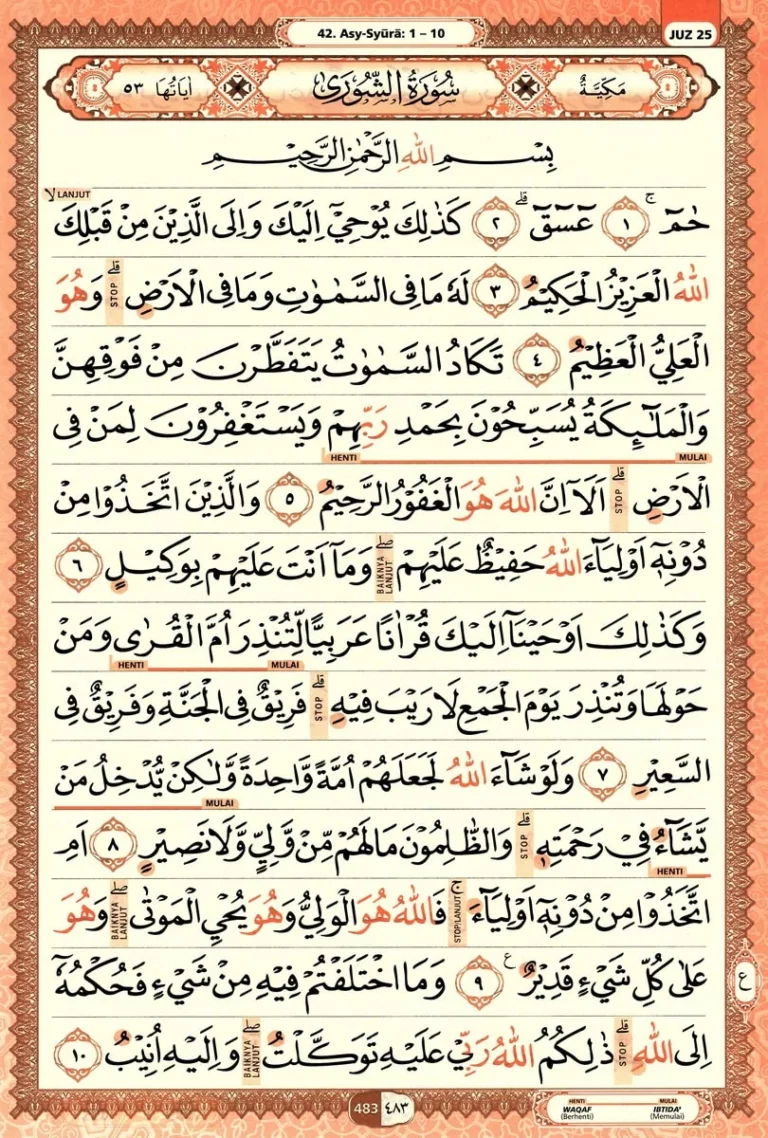 42. Asy-Syūrā: 1 – 10
JUZ 25
مَكِّيَّةٌ سُوْرَةُ الشُّوْرٰى اٰيَاتُهَا ٥٣
بِسْمِ اللّٰهِ الرَّحْمٰنِ الرَّحِيْمِ
LANJUT
حٰمۤ ۚ ١ عۤسۤقۤ ۗ ٢ كَذٰلِكَ يُوْحِيْٓ اِلَيْكَ وَاِلَى الَّذِيْنَ مِنْ قَبْلِكَ ۙ
اللّٰهُ الْعَزِيْزُ الْحَكِيْمُ ٣ لَهٗ مَا فِى السَّمٰوٰتِ وَمَا فِى الْاَرْضِ ۗ STOP وَهُوَ
الْعَلِيُّ الْعَظِيْمُ ٤ تَكَادُ السَّمٰوٰتُ يَتَفَطَّرْنَ مِنْ فَوْقِهِنَّ
وَالْمَلٰۤىِٕكَةُ يُسَبِّحُوْنَ بِحَمْدِ رَبِّهِمْ وَيَسْتَغْفِرُوْنَ لِمَنْ فِى
MULAI HENTI
الْاَرْضِ ۗ STOP اَلَآ اِنَّ اللّٰهَ هُوَ الْغَفُوْرُ الرَّحِيْمُ ٥ وَالَّذِيْنَ اتَّخَذُوْا مِنْ
دُوْنِهٖٓ اَوْلِيَاۤءَ اللّٰهُ حَفِيْظٌ عَلَيْهِمْ ۖ BAIKNYA LANJUT وَمَآ اَنْتَ عَلَيْهِمْ بِوَكِيْلٍ ٦
وَكَذٰلِكَ اَوْحَيْنَآ اِلَيْكَ قُرْاٰنًا عَرَبِيًّا لِّتُنْذِرَ اُمَّ الْقُرٰى وَمَنْ
MULAI HENTI
حَوْلَهَا وَتُنْذِرَ يَوْمَ الْجَمْعِ لَا رَيْبَ فِيْهِ ۗ STOP فَرِيْقٌ فِى الْجَنَّةِ وَفَرِيْقٌ فِى
السَّعِيْرِ ٧ وَلَوْ شَاۤءَ اللّٰهُ لَجَعَلَهُمْ اُمَّةً وَّاحِدَةً وَّلٰكِنْ يُّدْخِلُ مَنْ
MULAI
يَّشَاۤءُ فِيْ رَحْمَتِهٖ ۗ STOP وَالظّٰلِمُوْنَ مَا لَهُمْ مِّنْ وَّلِيٍّ وَّلَا نَصِيْرٍ ٨ اَمِ
HENTI
اتَّخَذُوْا مِنْ دُوْنِهٖٓ اَوْلِيَاۤءَ ۚ STOP/LANJUT فَاللّٰهُ هُوَ الْوَلِيُّ وَهُوَ يُحْيِ الْمَوْتٰى ۖ BAIKNYA LANJUT وَهُوَ
عَلٰى كُلِّ شَيْءٍ قَدِيْرٌ ࣖ ٩ وَمَا اخْتَلَفْتُمْ فِيْهِ مِنْ شَيْءٍ فَحُكْمُهٗٓ
ع
اِلَى اللّٰهِ ۗ STOP ذٰلِكُمُ اللّٰهُ رَبِّيْ عَلَيْهِ تَوَكَّلْتُ ۖ BAIKNYA LANJUT وَاِلَيْهِ اُنِيْبُ ١٠
483 ٤٨٣
HENTI MULAI
WAQAF IBTIDA'
(Berhenti) (Memulai)